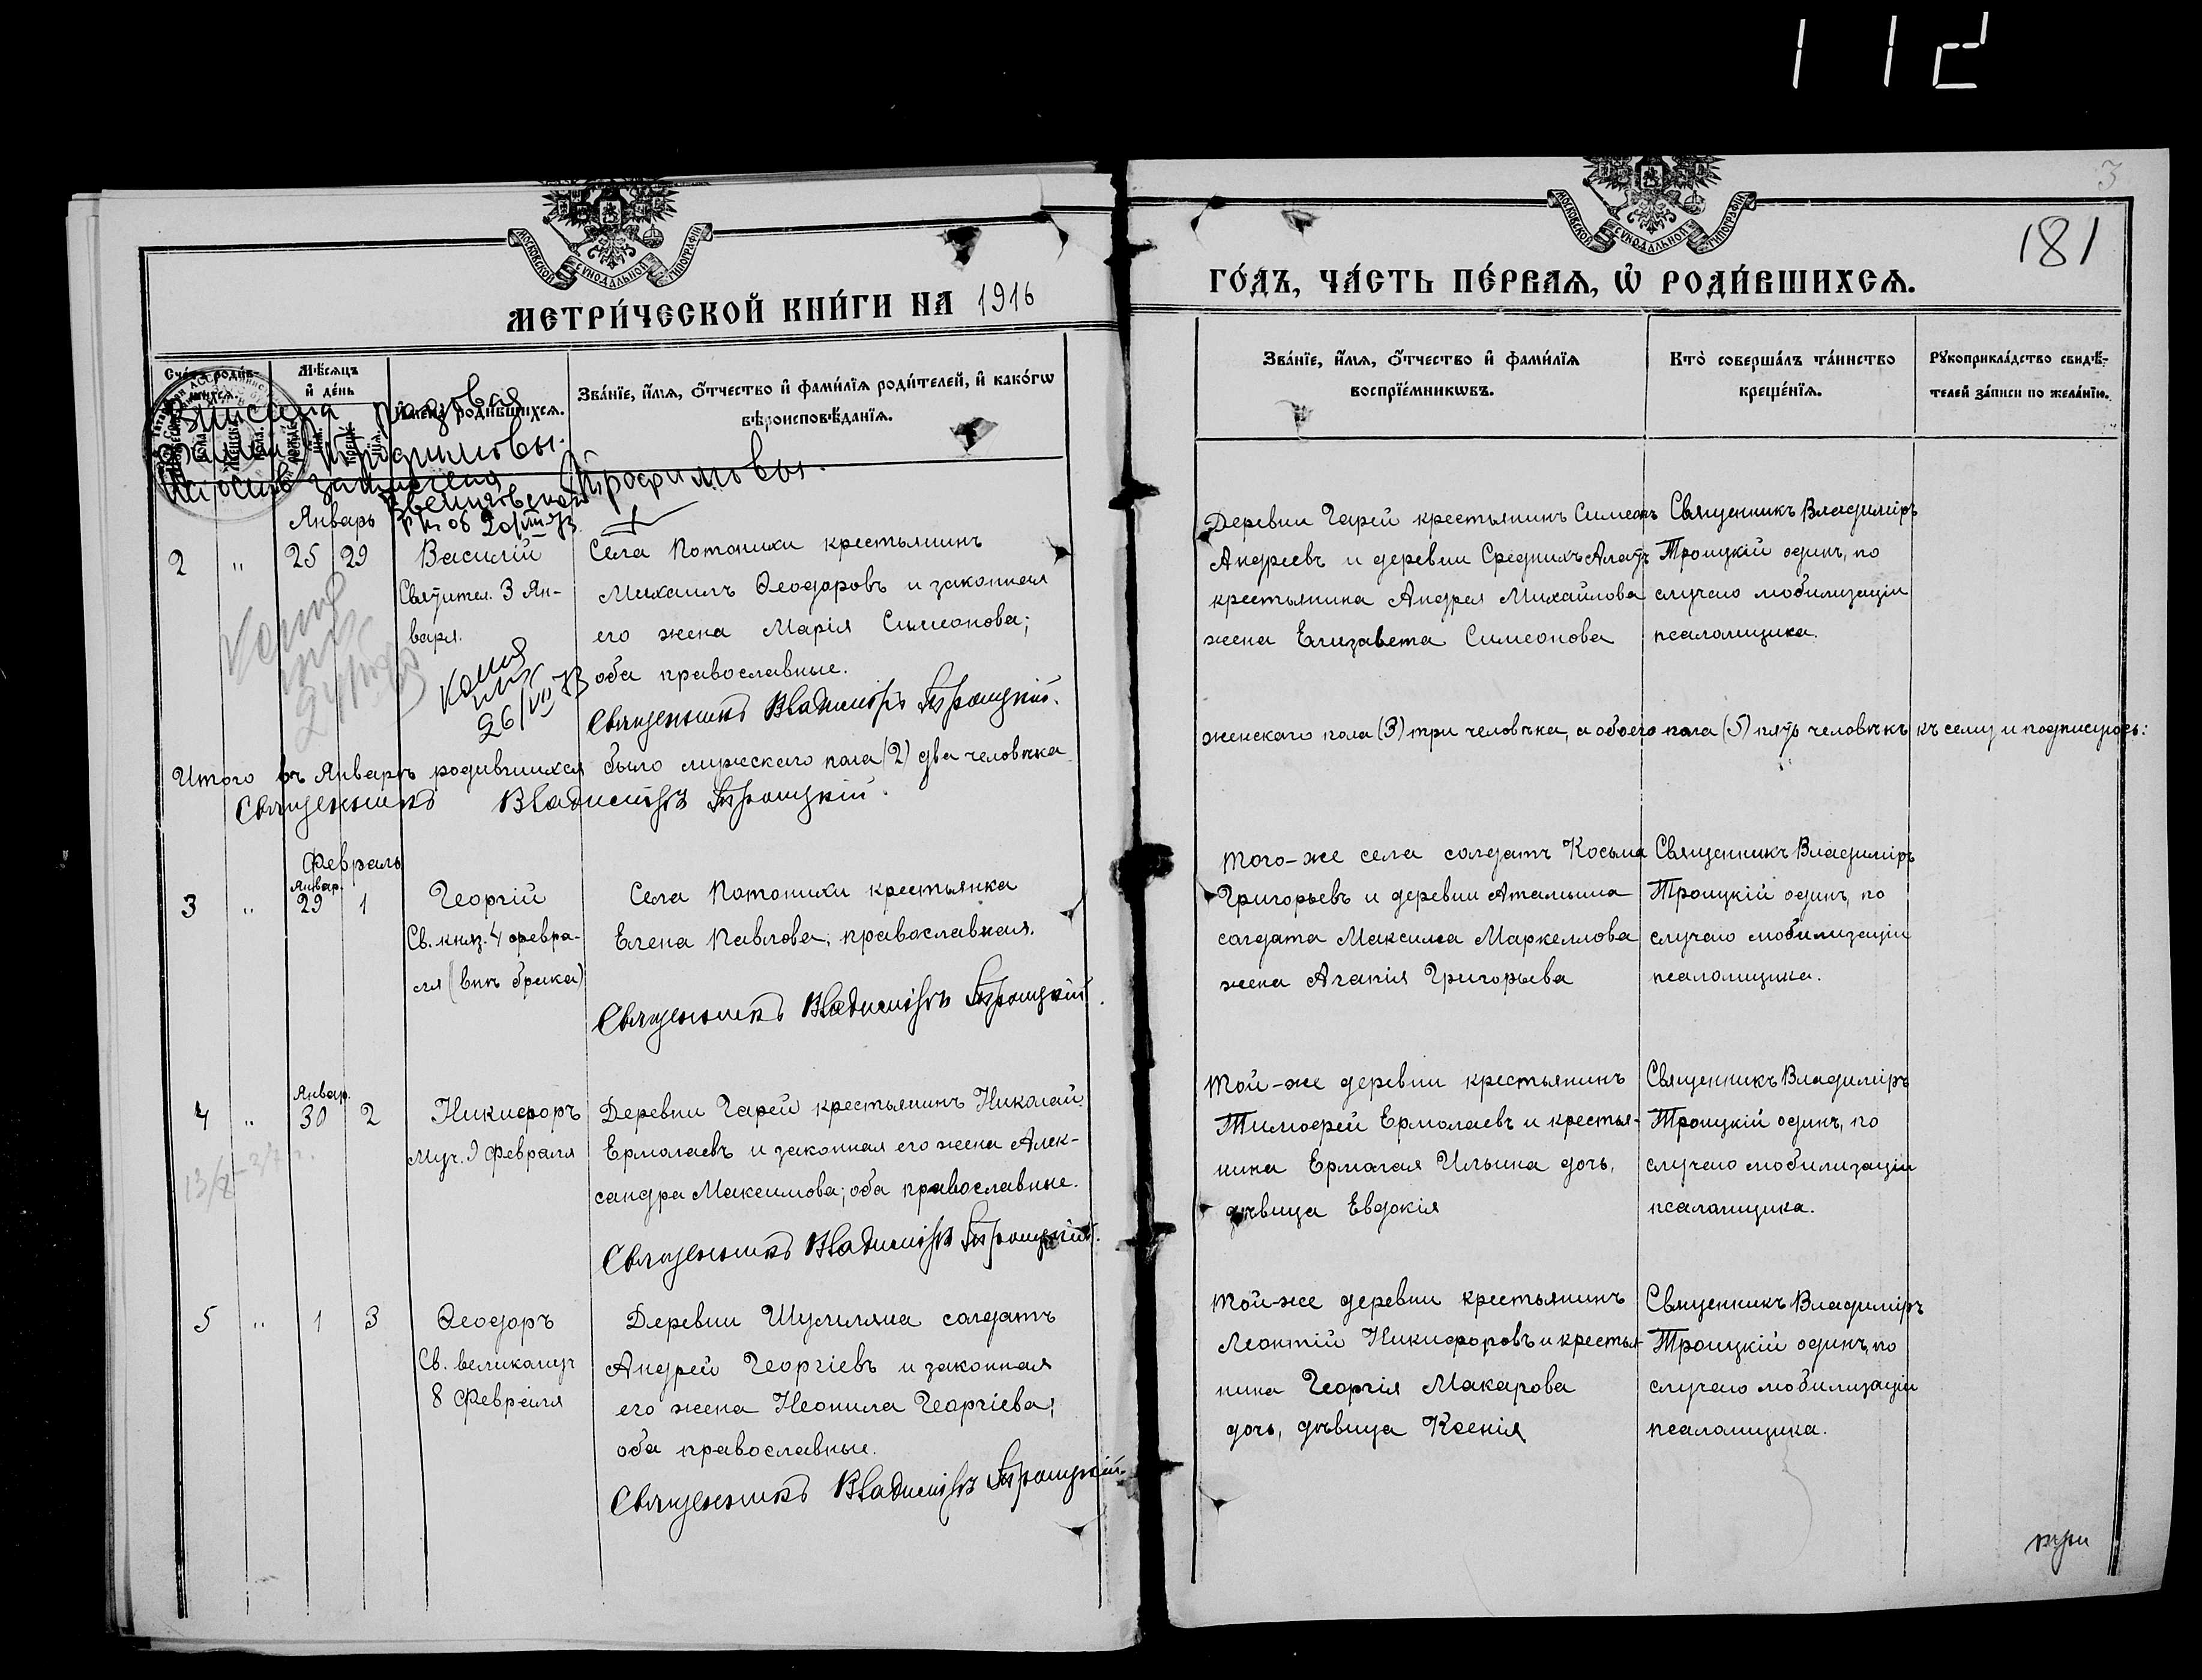 112
3
181
МОСКОВСКОЙ СѴНОДАЛЬНОЙ ТИПОГРАФІИ
МОСКОВСКОЙ СѴНОДАЛЬНОЙ ТИПОГРАФІИ
МЕТРИ́ЧЕСКОЙ КНИ́ГИ НА 1916
ГО́ДЪ, ЧА́СТЬ ПЕ́РВАЯ, Ѡ҆ РОДИ́ВШИХСЯ.
Мѣ́сяцъ
и҆ де́нь
Зва́нїе, и҆́мя, ѻ҆́тчество и҆ фами́лїя роди́телей, и҆ како́гѡ
вѣроисповѣ́данїя.
Зва́нїе, и҆́мя, ѻ҆́тчество и҆ фами́лїя
воспрїе́мникѡвъ.
Кто̀ соверша́лъ та́инство
креще́нїя.
Рꙋкоприкла́дство свидѣ́-
телей за́писи по жела́нїю.
Трофимовы.
Январь
2 " 25 29
Василій
Святител. 3 Ян-
варя.
Села Потанихи крестьянинъ
Михаилъ Ѳеодоровъ и законная
его жена Марія Симеонова;
оба православные.
Священникъ Владиміръ Троицкій.
Деревни Гарей крестьянинъ Симеонъ
Андреевъ и деревни Среднихъ Алатъ
крестьянина Андрея Михайлова
жена Елизавета Симеонова
Священникъ Владиміръ
Троицкій одинъ, по
случаю мобилизаціи
псаломщика.
Копия
26/VII 73
Итого въ Январѣ родившихся было мужескаго пола (2) два человѣка
женскаго пола (3) три человѣка, а обоего пола (5) пять человѣкъ къ сему и подписуюсь:
Священникъ Владиміръ Троицкій.
Февраль
Январ.
3 " 29 1
Георгій
Св. княз. 4 февра-
ля (внѣ брака)
Села Потанихи крестьянка
Елена Павлова, православная.
Священникъ Владиміръ Троицкій.
Того-же села солдатъ Косьма
Григорьевъ и деревни Аталына
солдата Максима Маркеллова
жена Агапія Григорьева
Священникъ Владиміръ
Троицкій одинъ, по
случаю мобилизаціи
псаломщика.
Январ.
4 " 30 2
Никифоръ
Муч. 9 Февраля
Деревни Гарей крестьянинъ Николай
Ермолаевъ и законная его жена Алек-
сандра Максимова; оба православные.
Священникъ Владиміръ Троицкій.
Той-же деревни крестьянинъ
Тимофей Ермолаевъ и крестья-
нина Ермолая Ильина дочь,
дѣвица Евдокія
Священникъ Владиміръ
Троицкій одинъ, по
случаю мобилизаціи
псаломщика.
5 " 1 3
Ѳеодоръ
Св. великомуч
8 Февраля
Деревни Шумиляна солдатъ
Андрей Георгіевъ и законная
его жена Неонила Георгіева;
оба православные.
Священникъ Владиміръ Троицкій.
Той-же деревни крестьянинъ
Леонтій Никифоровъ и крестья-
нина Георгія Макарова
дочь, дѣвица Ксенія
Священникъ Владиміръ
Троицкій одинъ, по
случаю мобилизаціи
псаломщика.
три